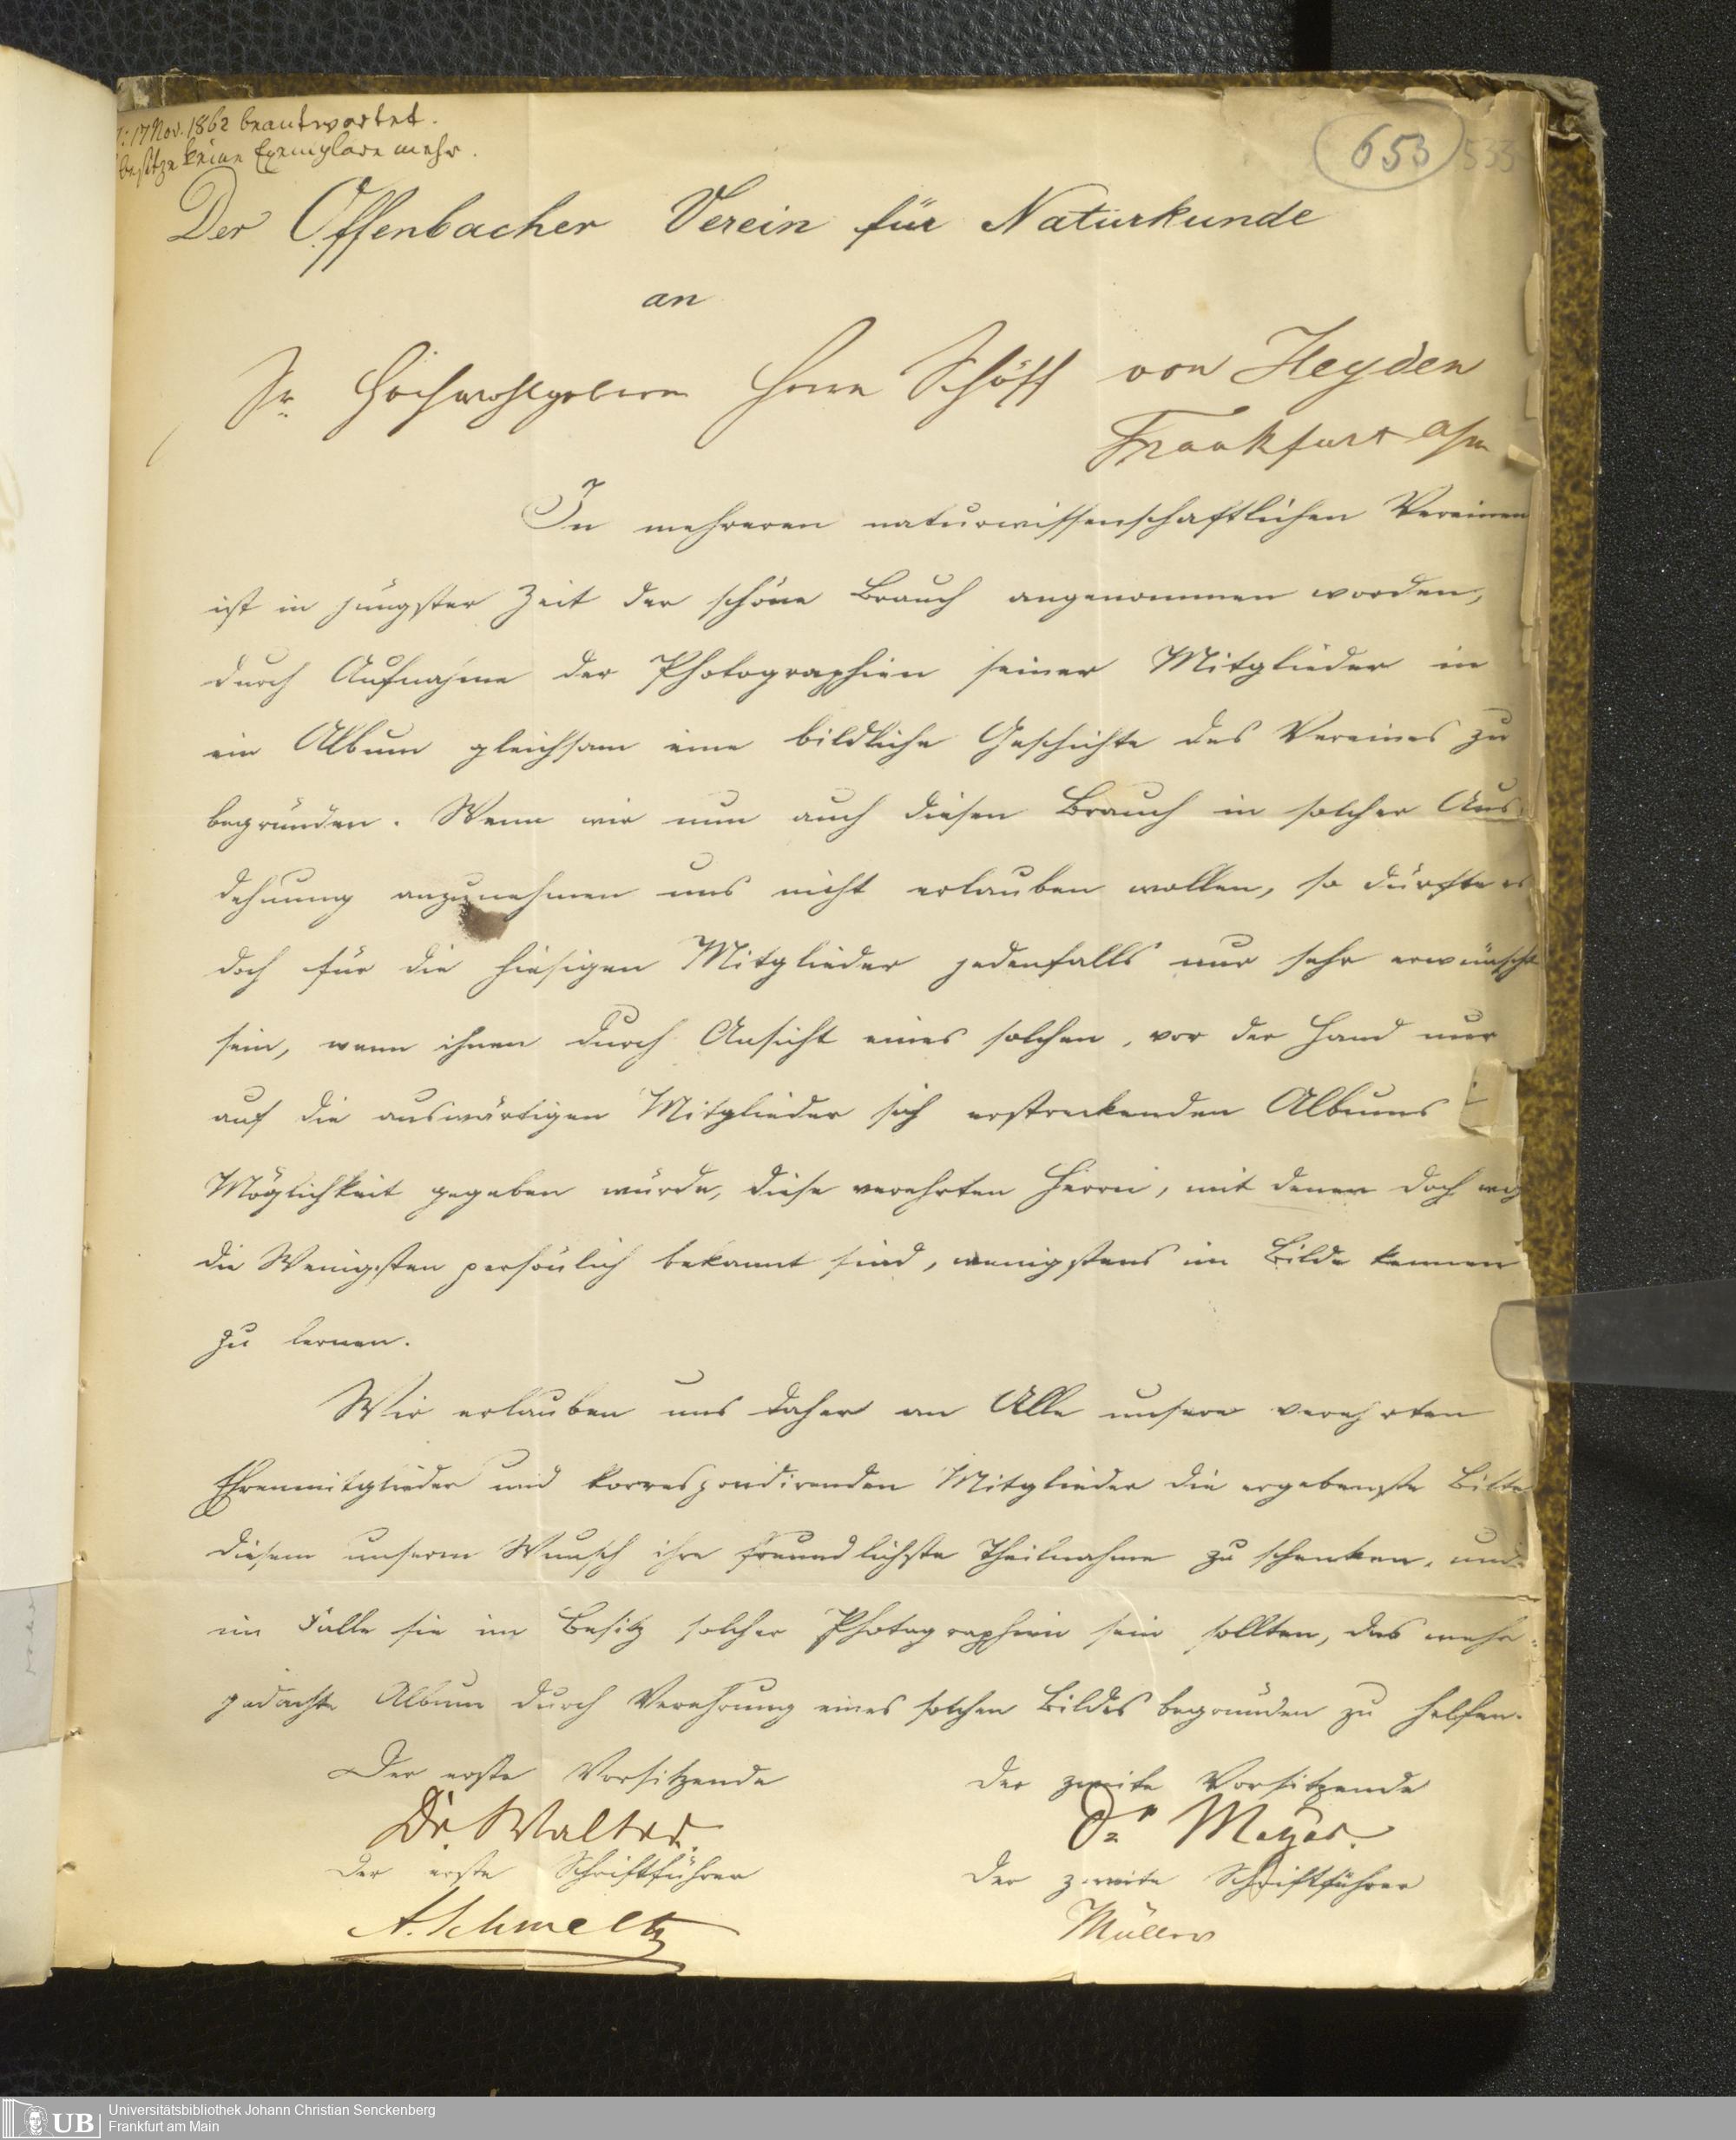 17 Nov. 1862 beantwortet.
besitze keine Exemplare mehr.
653 533
Der Offenbacher Verein für Naturkunde
an
Sr. Hochwohlgeboren Herrn Schöff von Heyden
Frankfurt a/m
In mehreren naturwissenschaftlichen Vereinen
ist in jüngster Zeit der schöne Brauch angenommen worden,
durch Aufnahme der Photographien seiner Mitglieder in
ein Album gleichsam eine bildliche Geschichte des Vereines zu
begründen. Wenn wir nun auch diesen Brauch in solcher Aus
dehnung anzunehmen uns nicht erlauben wollen, so dürfte es
doch für die hiesigen Mitglieder jedenfalls nur sehr erwünscht
sein, wenn ihnen durch Ansicht eines solchen, vor der Hand nur
auf die auswärtigen Mitglieder sich erstreckenden Albums
Möglichkeit gegeben würde, diese verehrten Herrn, mit denen doch
die Wenigsten persönlich bekannt sind, wenigstens im Bilde kennen
zu lernen.
Wir erlauben uns daher an Alle unsere verehrten
Ehrenmitglieder und korrespondirenden Mitglieder die ergebenste Bitte
diesem unserm Wunsch ihre freundlichste Theilnahme zu schenken, und
im Falle sie im Besitz solcher Photographien sein sollten, das mehr-
gedachte Album durch Verehrung eines solchen Bildes begründen zu helfen.
Der erste Vorsitzende der zweite Vorsitzende
Dr. Walter. Dr Meyer.
der erste Schriftführer der zweite Schriftführer
A. Schmeltz Müller
UB Universitätsbibliothek Johann Christian Senckenberg
Frankfurt am Main